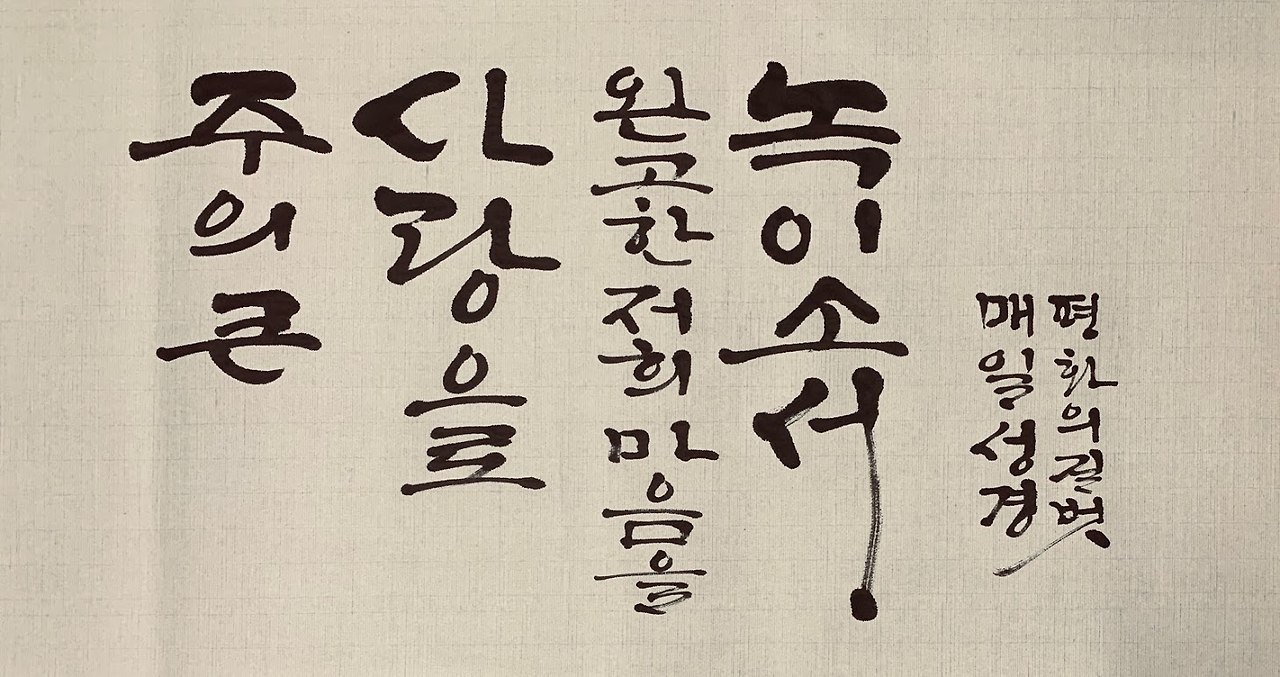 주의 큰
사랑으로
완고한 저희 마음을
녹이소서
매일성경
평화의길벗